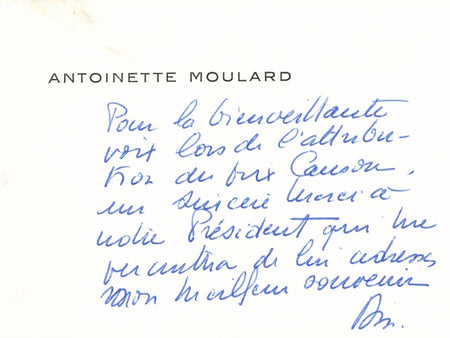 ANTOINETTE MOULARD
Pour la bienveillante
voix lors de l'attribu-
tion du prix Canson,
un sincère merci à
notre Président qui me
permettra de lui adresser
mon meilleur souvenir